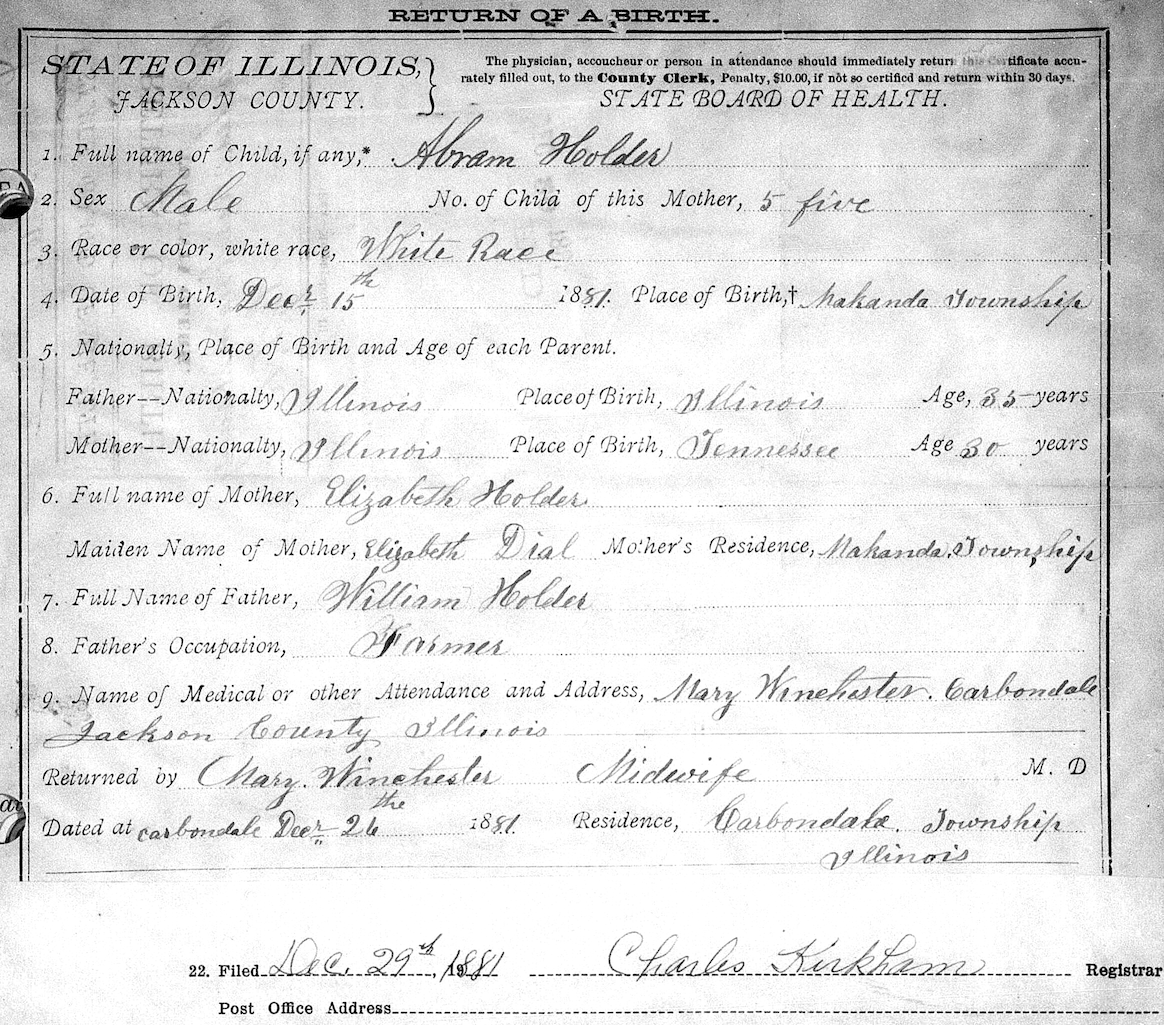 RETURN OF A BIRTH.
STATE OF ILLINOIS,
JACKSON COUNTY.
The physician, accoucheur or person in attendance should immediately return this Certificate accu-
rately filled out, to the County Clerk, Penalty, $10.00, if not so certified and return within 30 days.
STATE BOARD OF HEALTH.
1. Full name of Child, if any,* Abram Holder
2. Sex Male No. of Child of this Mother, 5 five
3. Race or color, white race, White Race
4. Date of Birth, Decr 15th 1881. Place of Birth,† Makanda Township
5. Nationalty, Place of Birth and Age of each Parent.
Father--Nationalty, Illinois Place of Birth, Illinois Age, 35 years
Mother--Nationalty, Illinois Place of Birth, Tennessee Age 30 years
6. Full name of Mother, Elizabeth Holder
Maiden Name of Mother, Elizabeth Dial Mother's Residence, Makanda. Township
7. Full Name of Father, William Holder
8. Father's Occupation, Farmer
9. Name of Medical or other Attendance and Address, Mary Winchester. Carbondale
Jackson County Illinois
Returned by Mary. Winchester Midwife M. D
Dated at carbondale Decr 26the 1881. Residence, Carbondale. Township
Illinois
22. Filed Dec. 29th, 1881 Charles Kirkham Registrar
Post Office Address